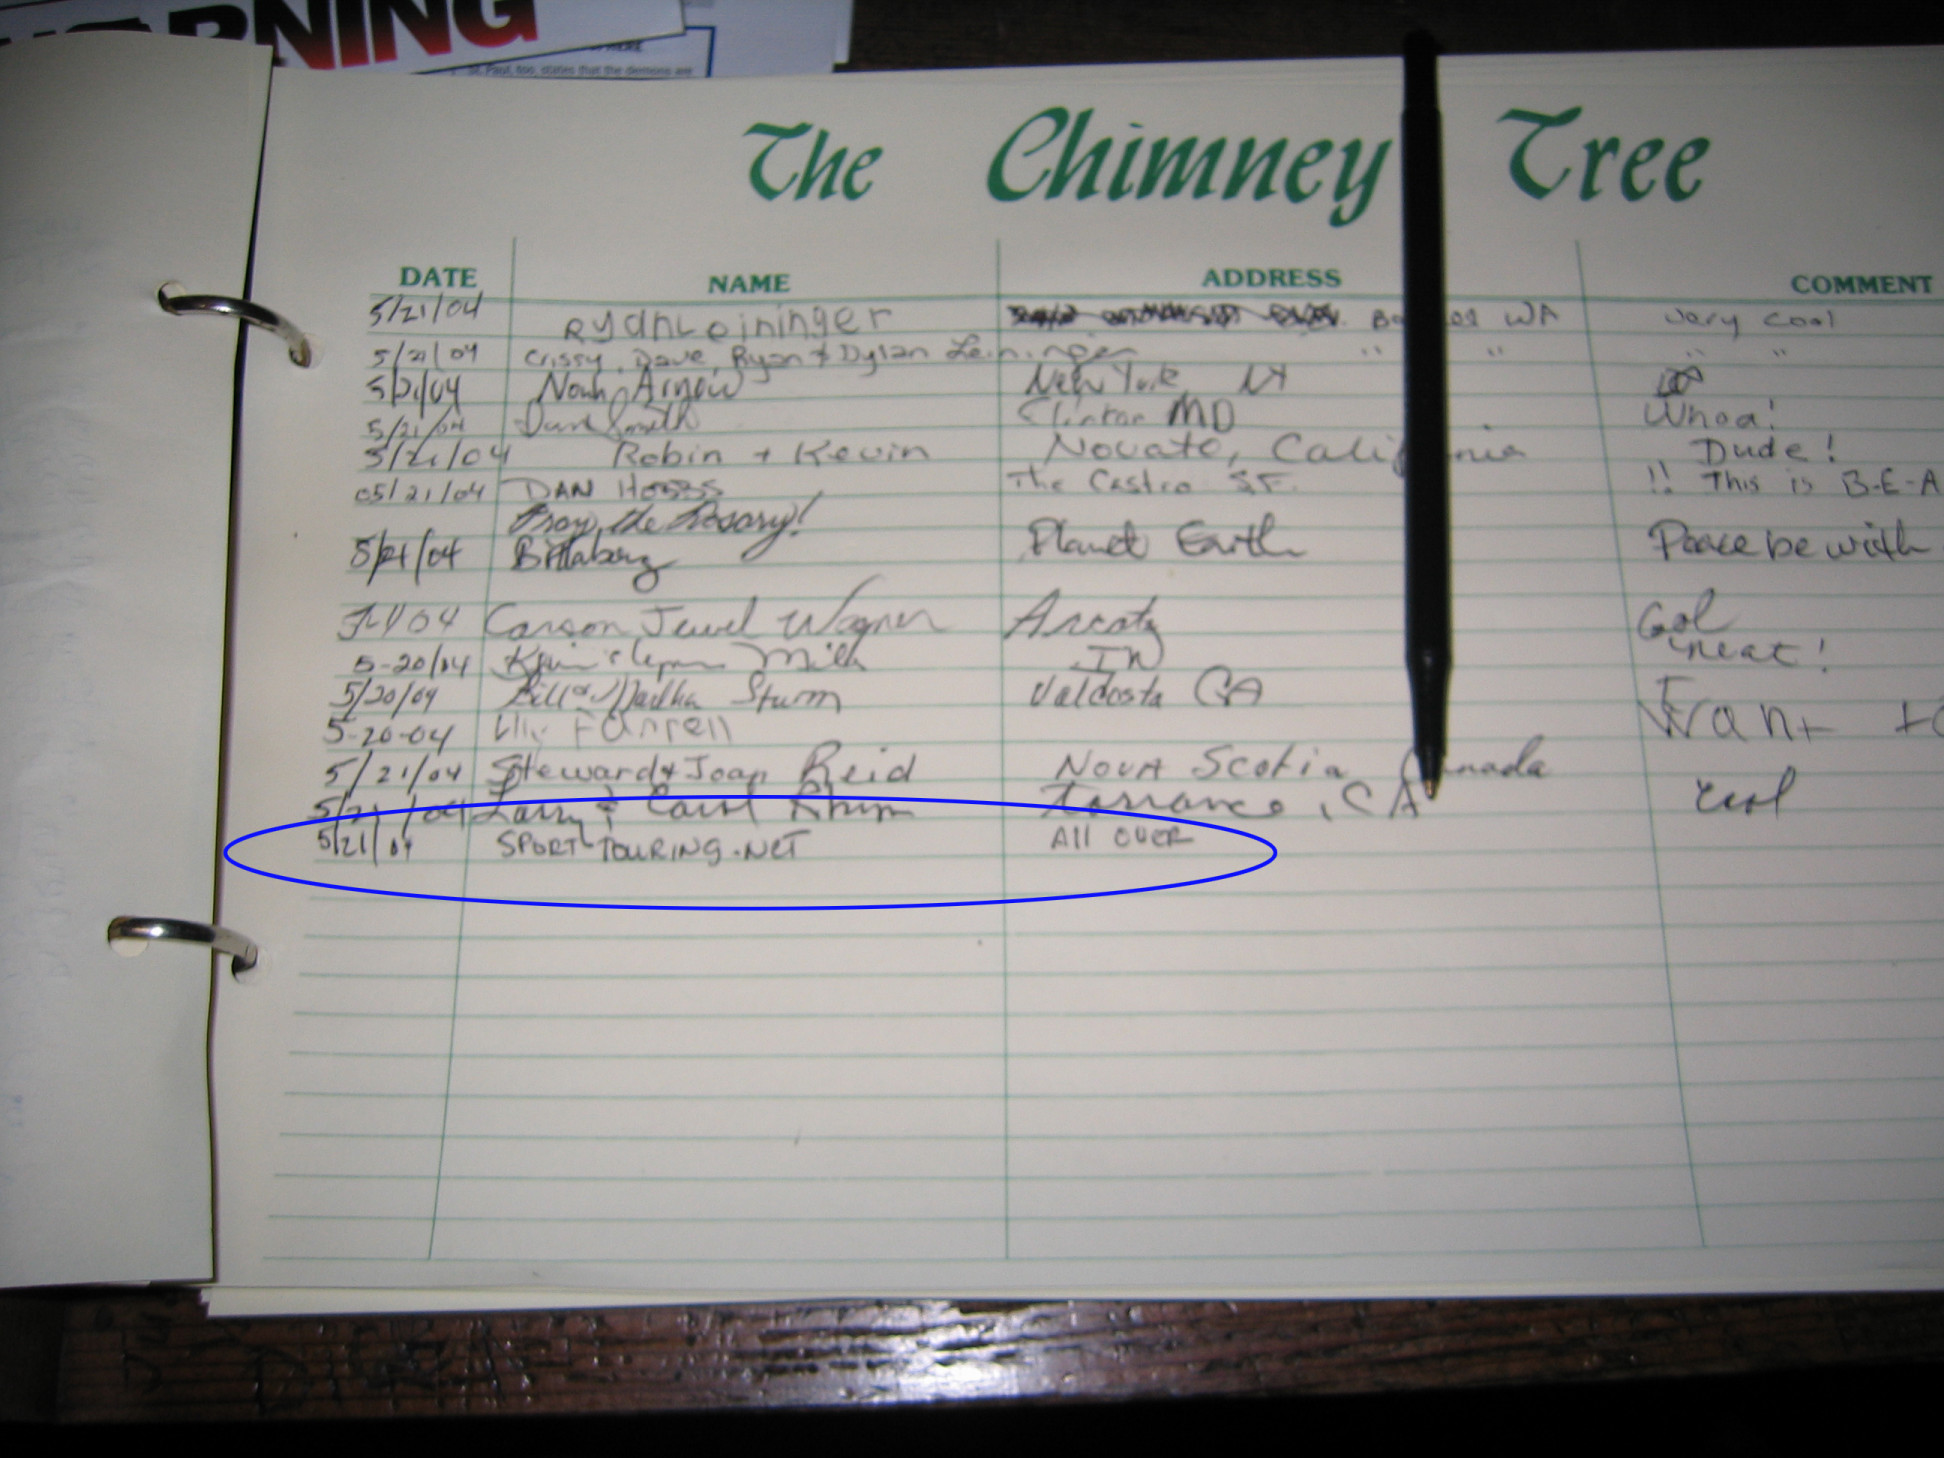 WARNING
HERE
St. Paul, too, states that the demons are
The Chimney Tree
DATE NAME ADDRESS COMMENT
5/21/04 Ryan Leininger WA Very Cool
5/21/04 Crissy, Dave, Ryan & Dylan Leininger " " " "
5/21/04 Noah Arnow New York NY
5/21/04 Dave Smith Clinton MD Whoa!
5/21/04 Robin + Kevin Novato, California Dude!
05/21/04 DAN HOBBS The Castro S.F. !! This is B-E-A
Pray the Rosary!
5/21/04 Planet Earth Peace be with
04 Carson Jewel Wagner Arcata Cool
5-20/04 IN neat!
5/20/04 Bill & Martha Sturm Valdosta GA I
5-20-04 Farrell Want to
5/21/04 Steward & Joan Reid Nova Scotia Canada
5/21/04 Larry & Carol Torrance, CA cool
5/21/04 SPORT-TOURING.NET All OVER